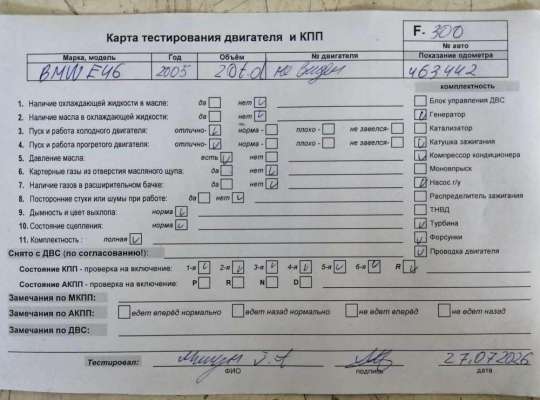 Карта тестирования двигателя и КПП F- 300
№ авто
Марка, модель Год Объём № двигателя Показание одометра
BMW E46 2005 2.0t.d не виден 463442
комплектность
1. Наличие охлаждающей жидкости в масле: да нет V
2. Наличие масла в охлаждающей жидкости: да нет V
3. Пуск и работа холодного двигателя: отлично- V норма - плохо - не завелся-
4. Пуск и работа прогретого двигателя: отлично- V норма - плохо - не завелся-
5. Давление масла: есть V нет
6. Картерные газы из отверстия масляного щупа: да нет V
7. Наличие газов в расширительном бачке: да нет V
8. Посторонние стуки или шумы при работе: да нет V
9. Дымность и цвет выхлопа: норма V
10. Состояние сцепления: норма V
11. Комплектность : полная V
Блок управления ДВС
V Генератор
Катализатор
V Катушка зажигания
V Компрессор кондиционера
Моновпрыск
V Насос г/у
Распределитель зажигания
ТНВД
V Турбина
V Форсунки
V Проводка двигателя
Снято с ДВС (по согласованию!):
Состояние КПП - проверка на включение: 1-я V 2-я V 3-я V 4-я V 5-я V 6-я V R V
Состояние АКПП - проверка на включение: P R N D
Замечания по МКПП:
Замечания по АКПП: едет вперёд нормально едет назад нормально не едет вперёд не едет назад
Замечания по ДВС:
Тестировал: 27.07.2026
ФИО подпись дата